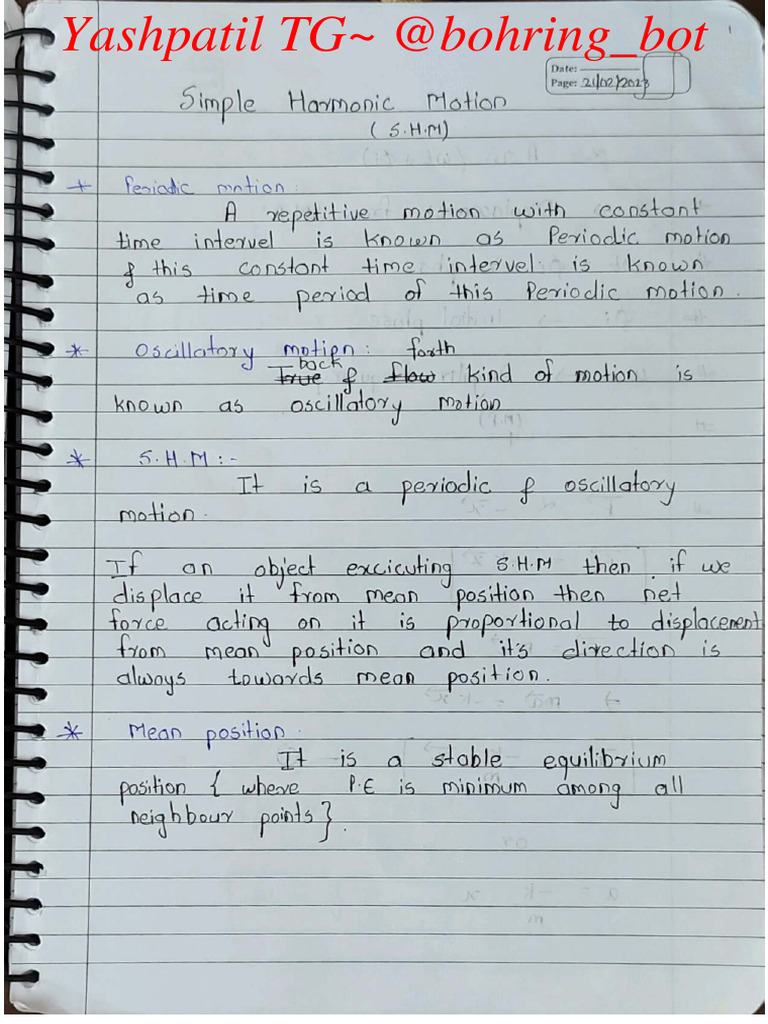 Yashpatil TG~ @bohring_bot
1
Date:
Page: 21/02/2023
Simple Harmonic Motion
(S.H.M)
* Periodic motion:
A repetitive motion with constant
time intervel is known as Periodic motion
& this constant time intervel is known
as time period of this Periodic motion.
* Oscillatory motion: forth
back
True & flow kind of motion is
known as oscillatory motion
* S.H.M:-
It is a periodic & oscillatory
motion.
If an object excicuting S.H.M then if we
displace it from mean position then net
force acting on it is proportional to displacement
from mean position and it's direction is
always towards mean position.
* Mean position:
It is a stable equilibrium
position { where P.E is minimum among all
neighbour points}.